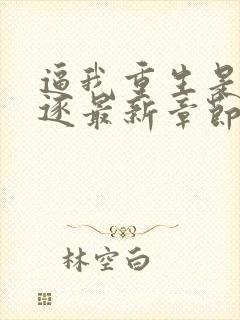 逼我重生是
逐最新章节
林空白